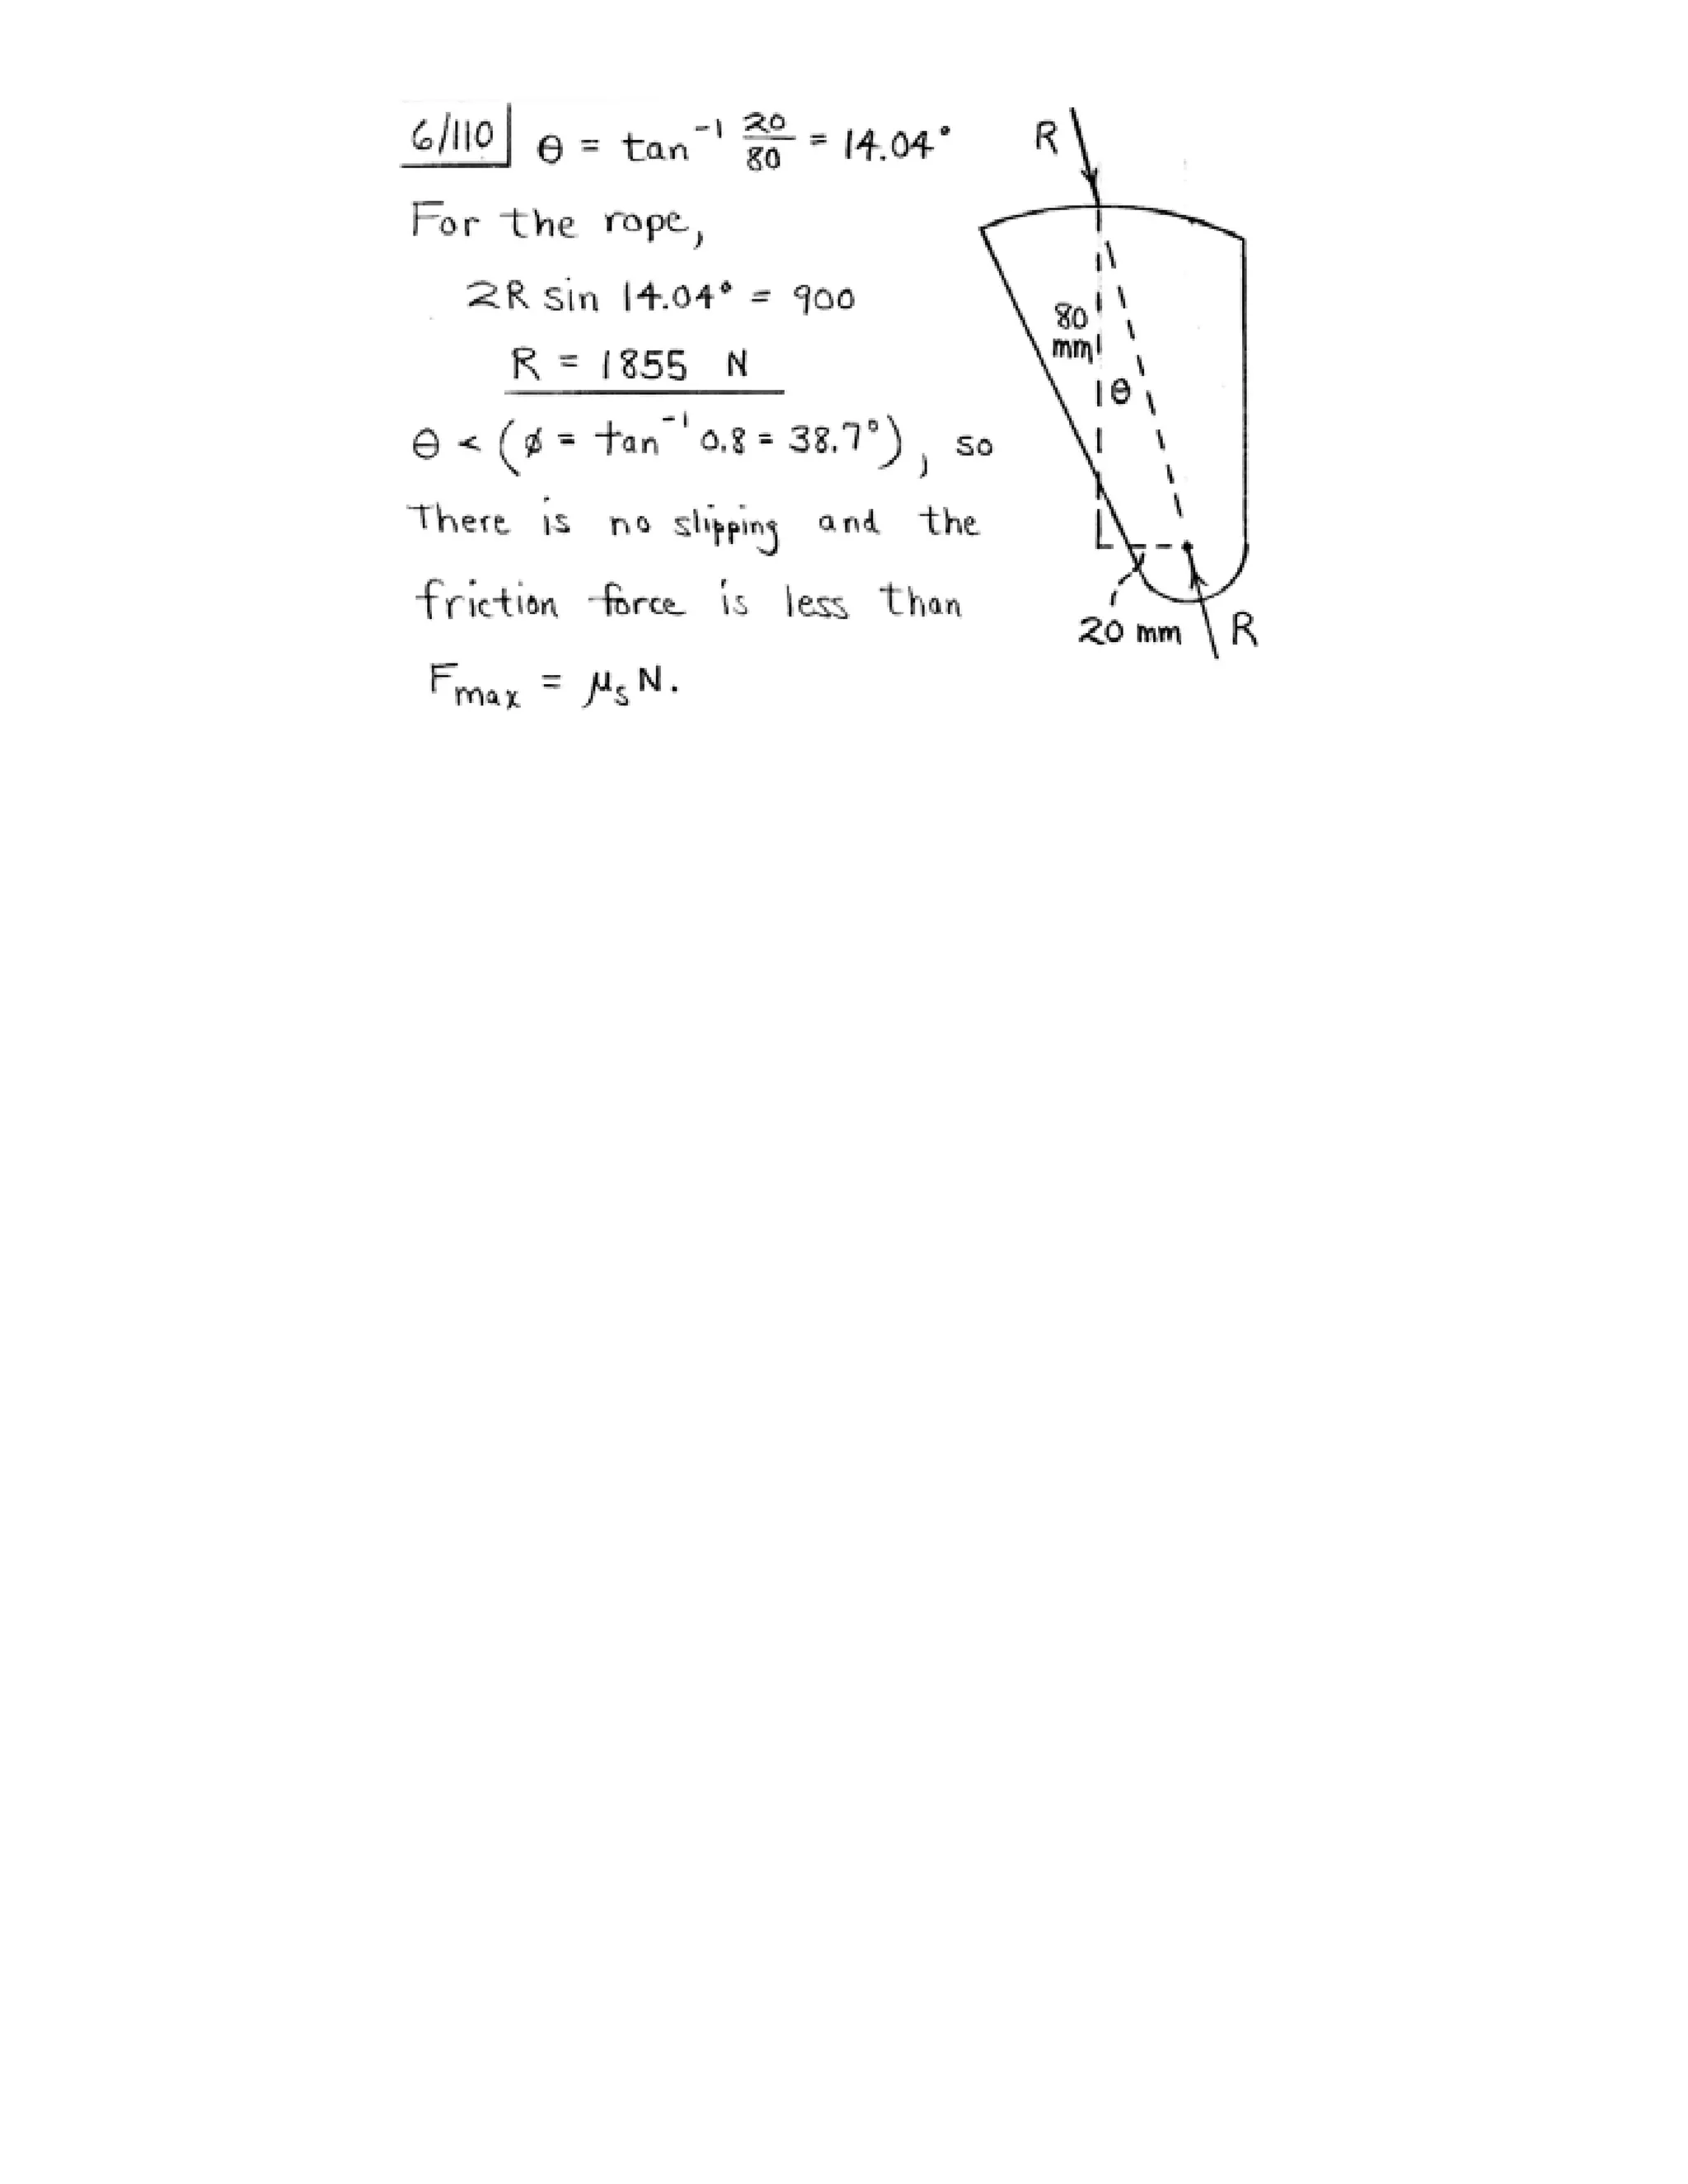 6/110 θ = tan⁻¹ 20/80 = 14.04°
For the rope,
2R sin 14.04° = 900
R = 1855 N
θ < (ø = tan⁻¹ 0.8 = 38.7°), so
There is no slipping and the
friction force is less than
Fmax = μs N.
R
80
mm
θ
20 mm
R